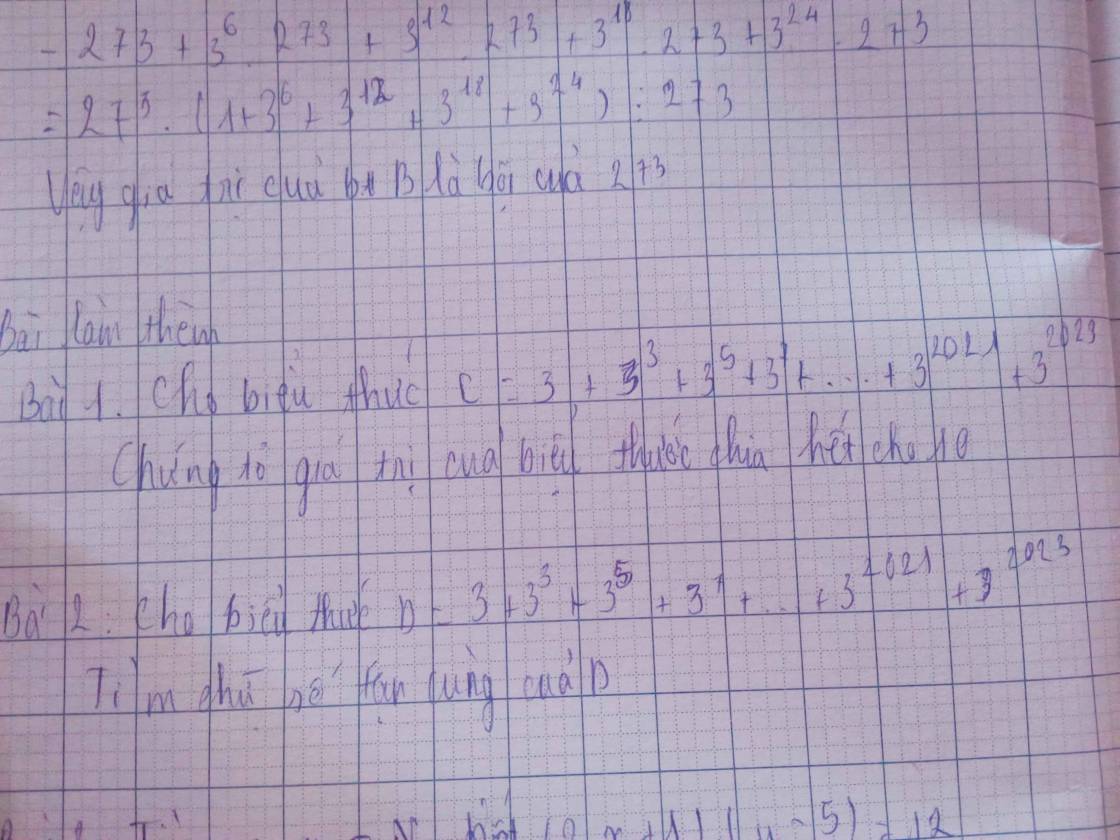 = 273 + 3⁶ . 273 + 3¹² . 273 + 3¹⁸ . 273 + 3²⁴ . 273
= 273 . (1+3⁶ + 3¹² + 3¹⁸ + 3²⁴) ⋮ 273
Vậy giá trị của bt B là bội của 273
Bài làm thêm
Bài 1. Cho biểu thức C = 3 + 3³ + 3⁵ + 3⁷ + ... + 3²⁰²¹ + 3²⁰²³
Chứng tỏ giá trị của biểu thức chia hết cho 10
Bài 2. Cho biểu thức D = 3 + 3³ + 3⁵ + 3⁷ + ... + 3²⁰²¹ + 3²⁰²³
Tìm chữ số tận cùng của D